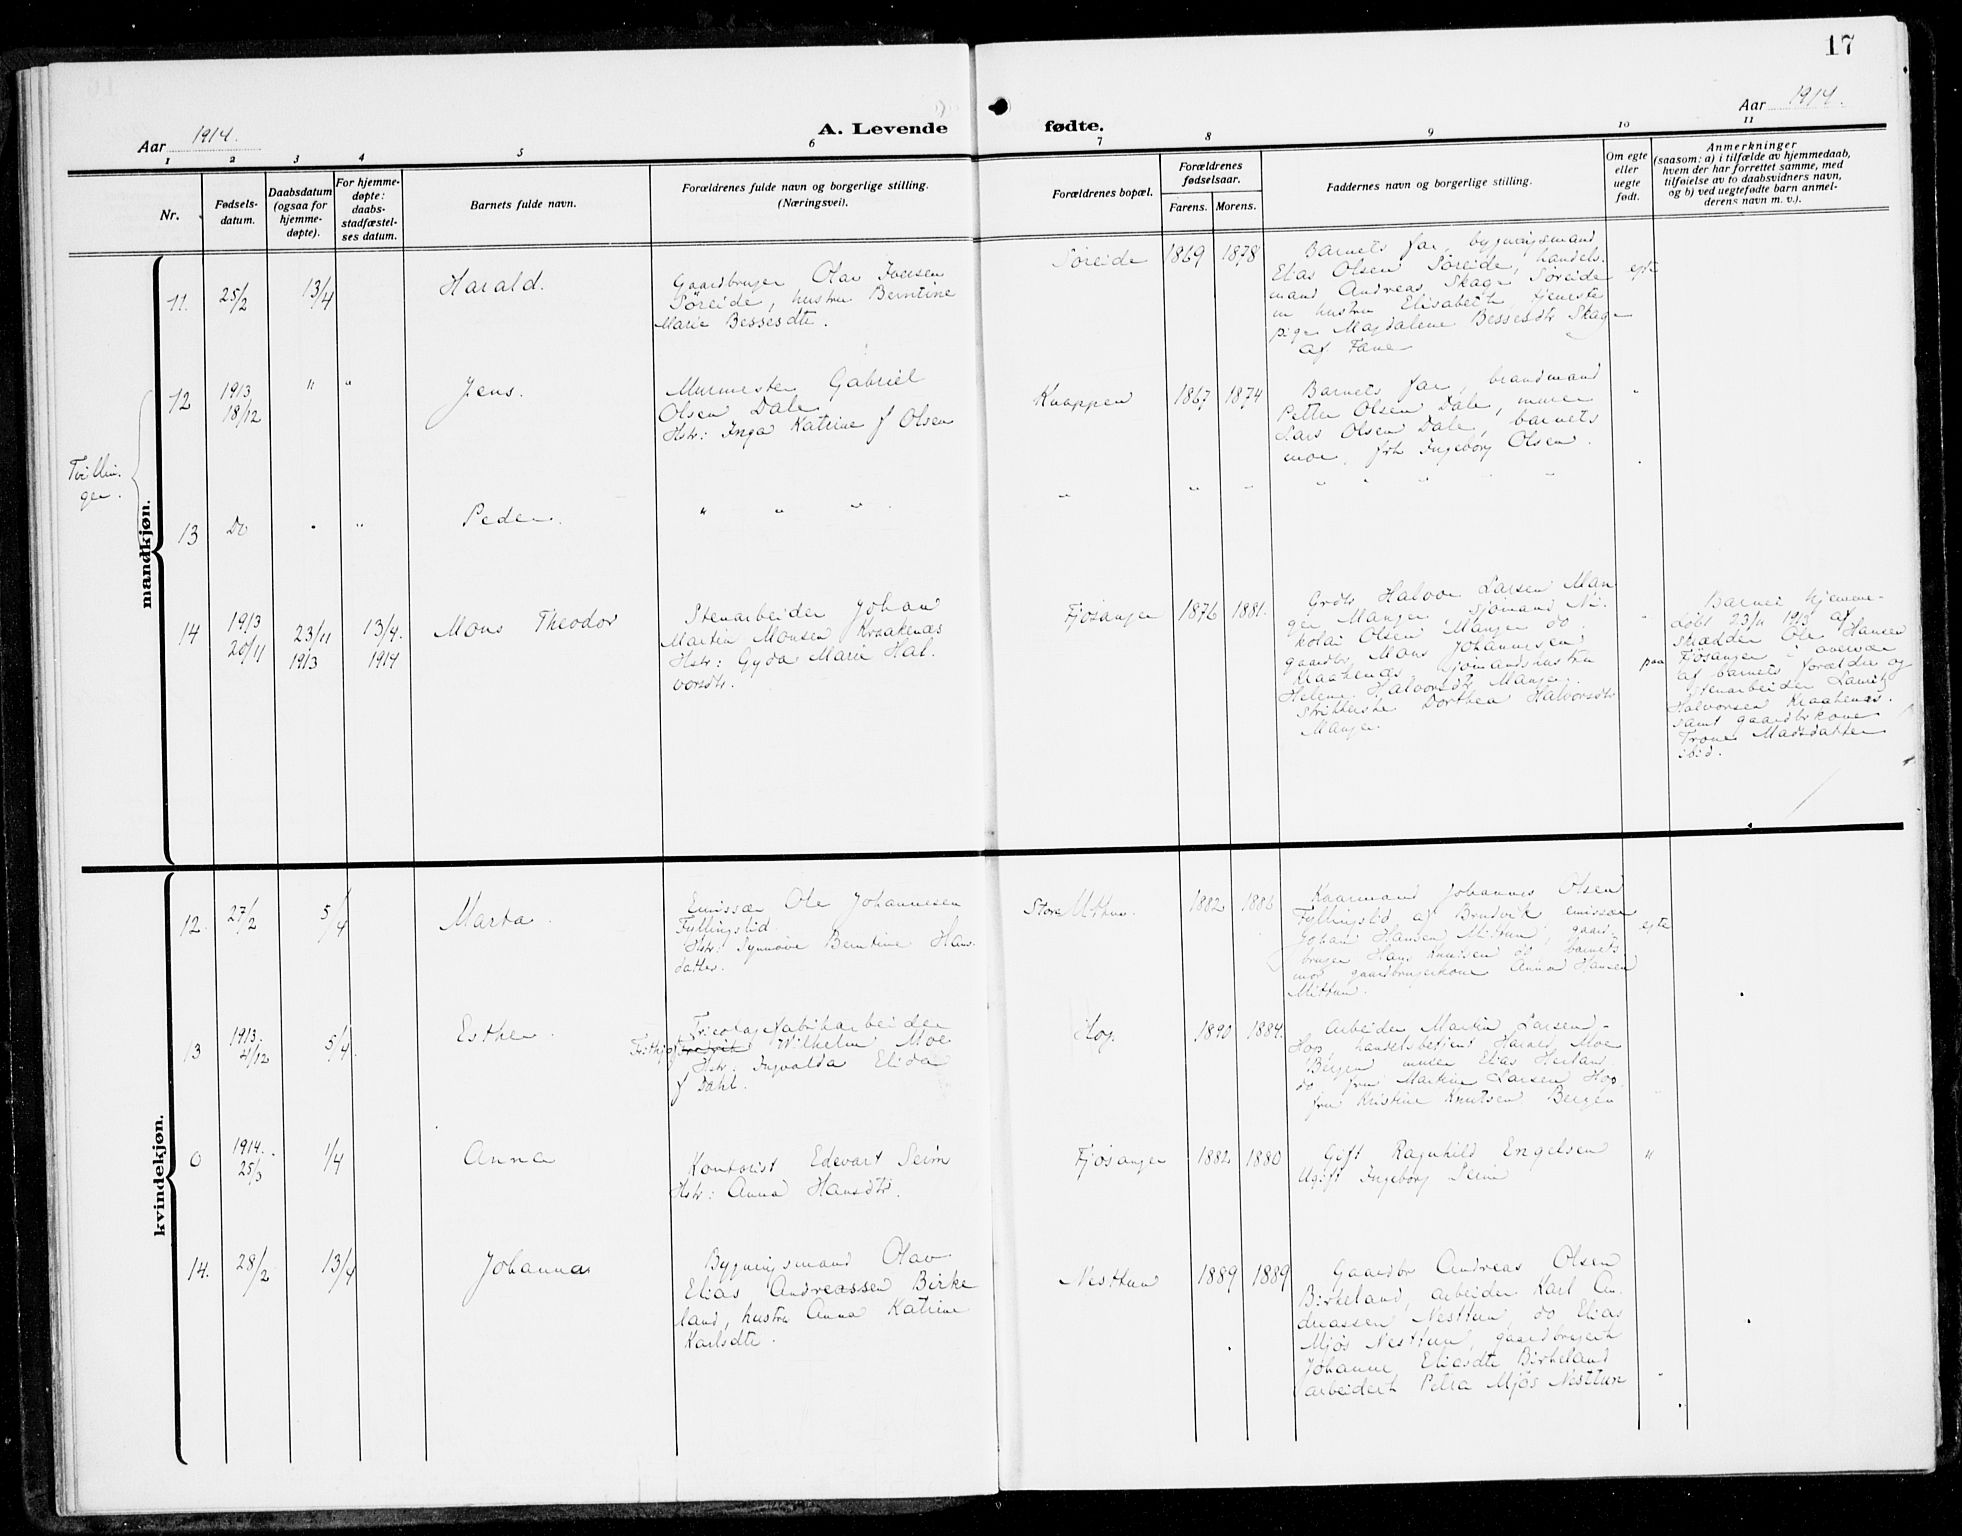 17
Aar 1914.
A. Levende fødte.
Aar 1914.
1 2 3 4 5 6 7 8 9 10 11
Nr.
Fødsels-
datum.
Daabsdatum
(ogsaa for
hjemme-
døpte).
For hjemme-
døpte:
daabs-
stadfæstel-
ses datum.
Barnets fulde navn.
Forældrenes fulde navn og borgerlige stilling.
(Næringsvei).
Forældrenes bopæl.
Forældrenes
fødselsaar.
Farens. Morens.
Faddernes navn og borgerlige stilling.
Om egte
eller
uegte
født.
Anmerkninger
(saasom: a) i tilfælde av hjemmedaab,
hvem der har forrettet samme, med
tilføielse av to daabsvidners navn,
og b) ved uegtefødte barn anmel-
derens navn m. v.).
mandkjøn.
11. 25/2 13/4 Harald.
Gaardbruger Olav Iversen
Søreide, hustru Berntine
Marie Bessesdtr.
Søreide 1869 1878
Barnets far, bygningsmand
Elias Olsen Søreide, handels-
mand Andreas Skage Søreide
m hustru Elisabeth, tjeneste
pige Magdalene Bessesdtr Skage
af Fane
egte
Tvillin-
ger.
12 1913 18/12 " " Jens.
Murmester Gabriel
Olsen Dale
Hstr: Inga Katrine f Olsen
Knappen 1867 1874
Barnets far, brandmand
Petter Olsen Dale, murer
Lars Olsen Dale, barnets
mor, frk Ingeborg Olsen.
"
13 Do " " Peder.
" " "
" " " " " " " "
14 1913 20/11 23/11 1913 13/4. 1914 Mons Theodor
Stenarbeider Johan
Martin Monsen Kraakenes
Hstr: Gyda Marie Hal-
vorsdtr.
Fjøsanger 1876 1881.
Grdbr Halvor Larsen Man
ger Manger, sjømand Ni-
kolai Olsen Manger do.
gaardbr Mons Johannesen
Kraakenes sjømandshustru
Helene Halvorsdtr Manger.
strikkerske Dorthea Halvorsdtr
Manger.
"
paa
Barnet hjemme-
døbt 23/11 1913 af
skrædder Ole Hansen
Fjøsanger i overvær
af barnets forældre og
stenarbeider Lauritz
Halvorsen Kraakenes.
samt gaardbrkone
Trone Madsdatter
ibid.
kvindekjøn.
12. 27/2 5/4 Marta.
Emissær Ole Johannesen
Fyllingslid.
Hstr: Synnøve Berntine Hans
datter.
Store Mittun. 1882 1886
Kaarmand Johannes Olsen
Fyllingslid af Brudvik emissær
Johan Hansen Mittun, gaard-
bruger Hans Knutsen do barnets
mor gaardbrugerkone Anna Hansen
Mittun.
egte
13 1913. 4/12 5/4. Esther.
Tricotagefabrikarbeider
Frithjof Wilhelm Moe
Hstr. Ingvalda Elida
f Dahl.
Hop. 1890 1884.
Arbeider Martin Larsen -
Hop, handelsbetjent Harald Moe
Bergen murer Elias Herland
do fru Martine Larsen Hop.
fru Kristine Knutsen Bergen
"
0 1914. 25/3 1/4 Anna
Kontorist Edevart Seim
Hstr: Anna Hansdtr.
Fjøsanger 1882 1880
Gift Ragnhild Engelsen
Ugift Ingeborg Seim
"
14. 28/2 13/4 Johanna
Bygningsmand Olav
Elias Andreassen Birke
land, hustru Anna Katrine
Karlsdtr.
Nesttun 1889 1889
Gaardbr Andreas Olsen
Birkeland, arbeider Karl An-
dreassen Nesttun, do Elias
Mjøs Nesttun, gaardbrugersk
Johanne Eliasdtr Birkeland
arbeidersk Petra Mjøs Nesttun
"